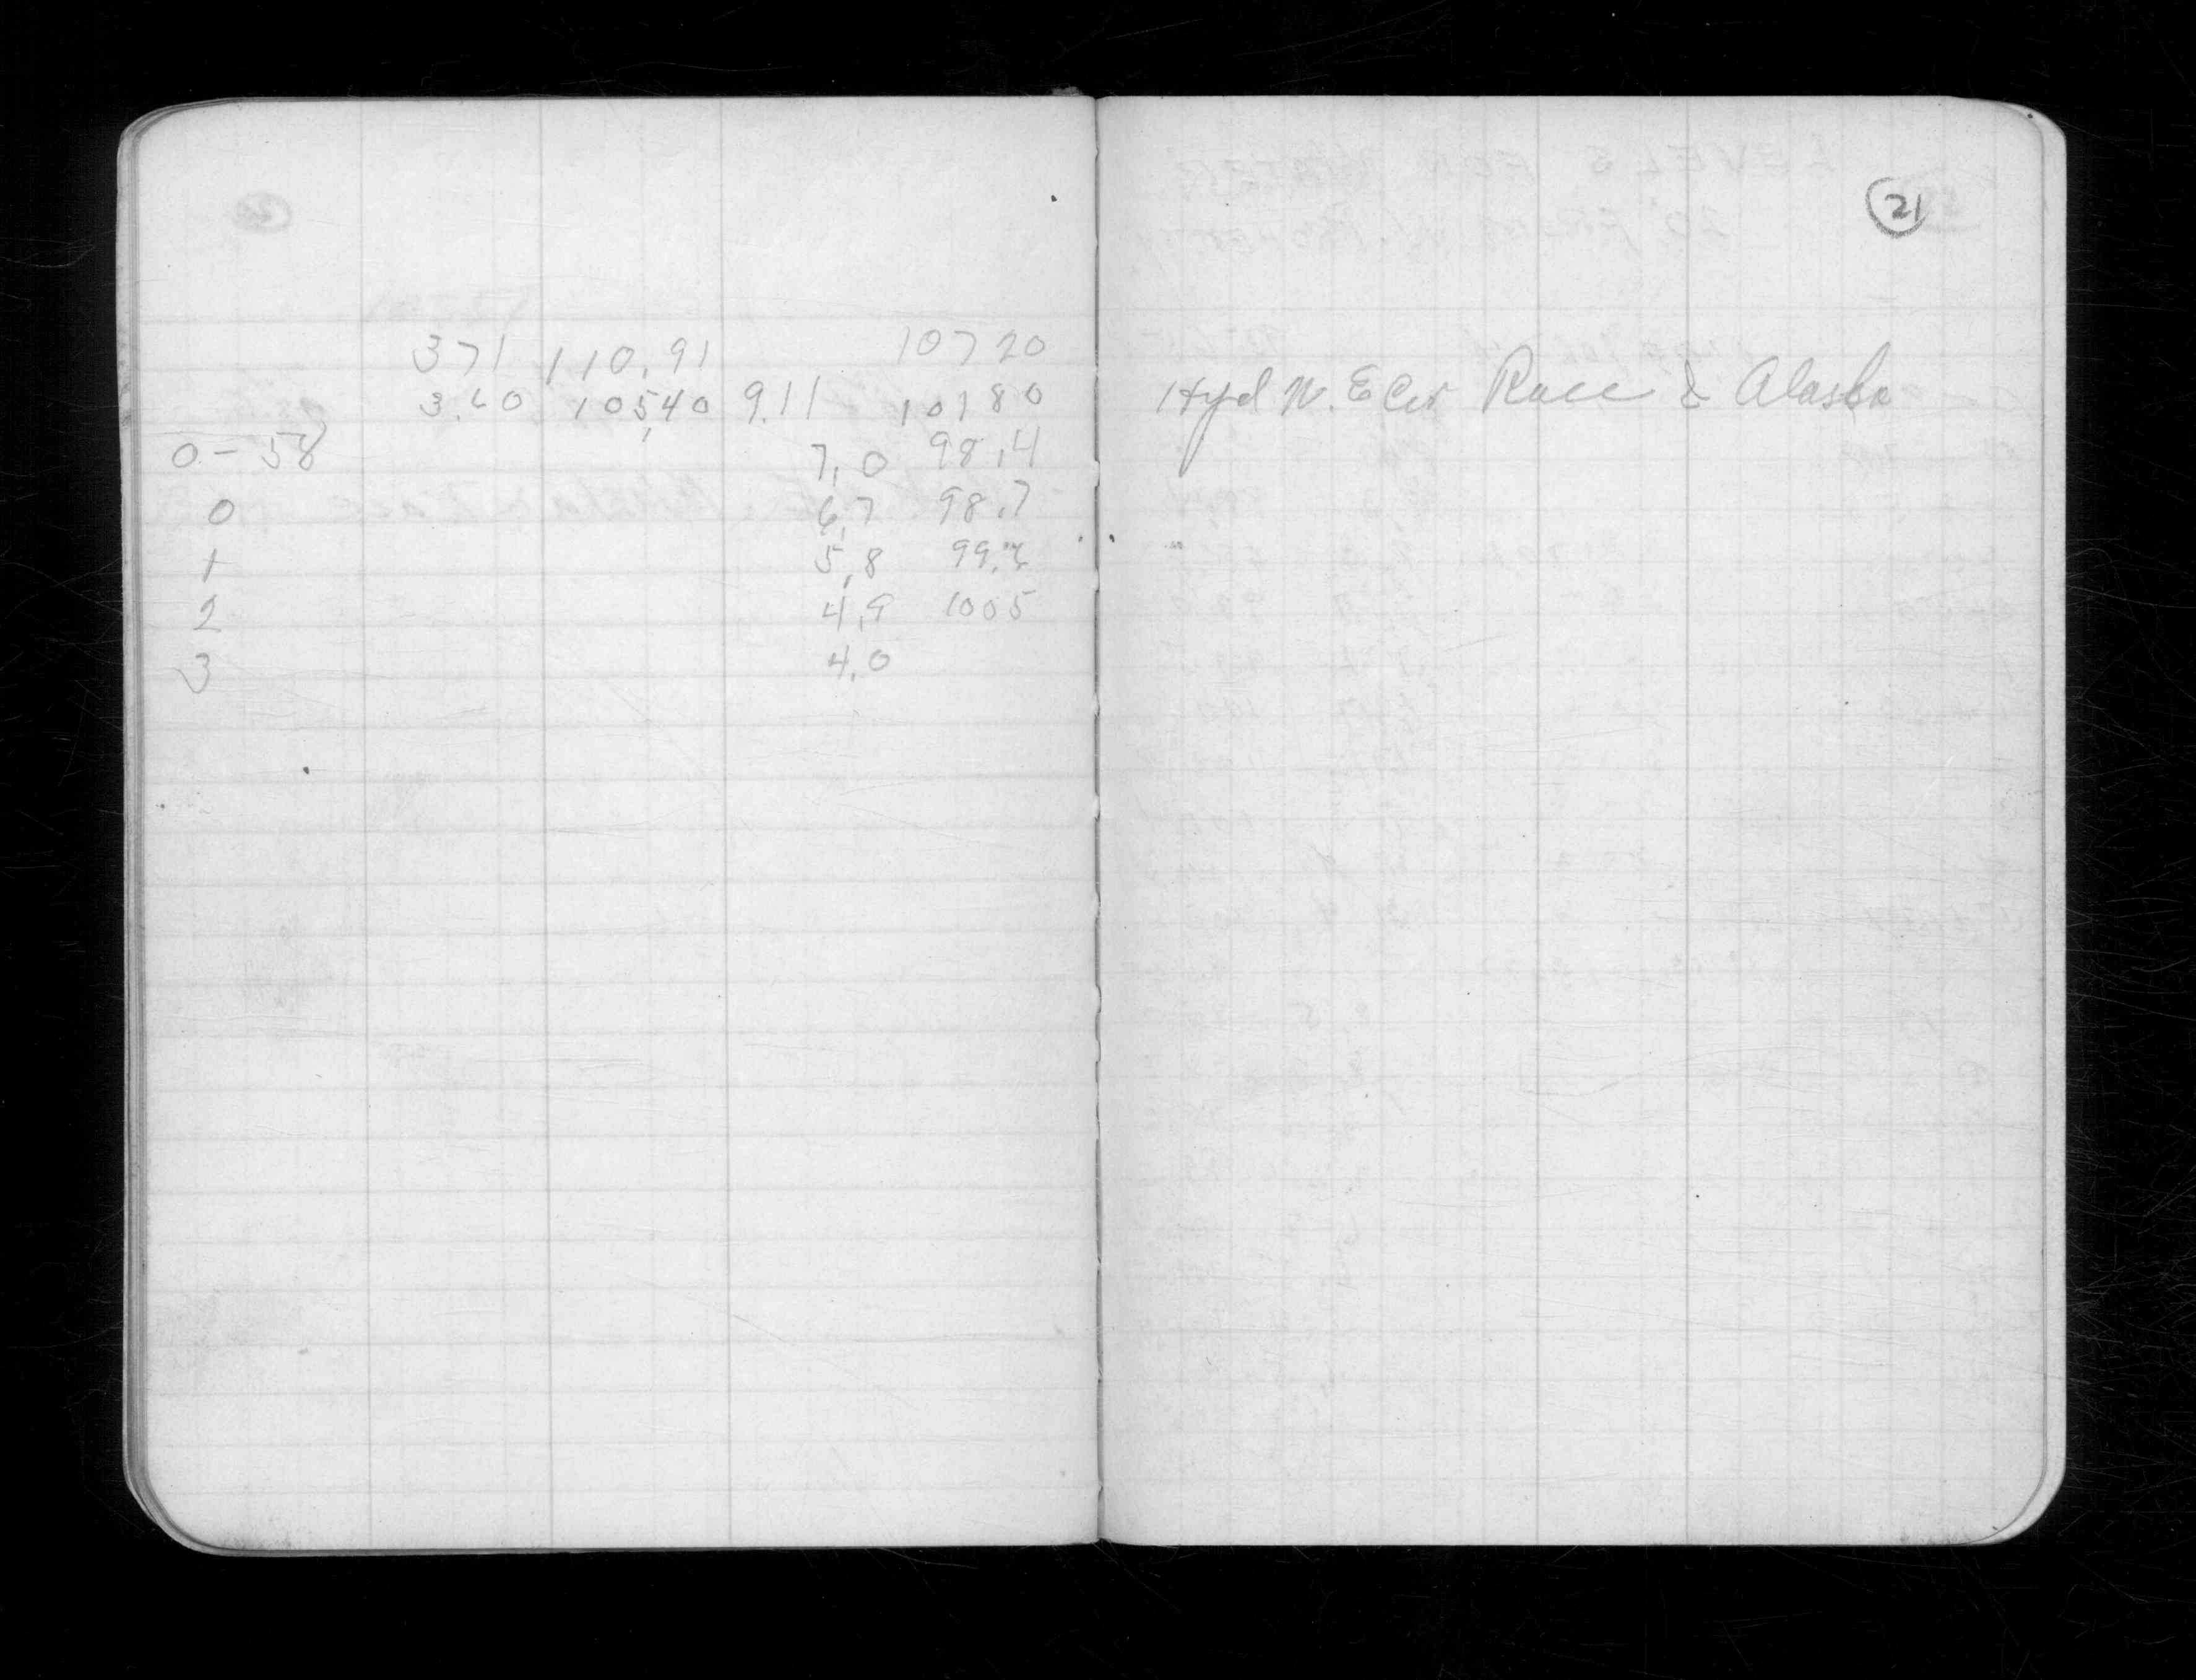 21
371 110.91 10720
3.60 105,40 9.11 10180
0-58 7.0 98.4
0 6.7 98.7
1 5.8 99.6
2 4.9 1005
3 4.0
Hyd N. E Cor Race & Alaska